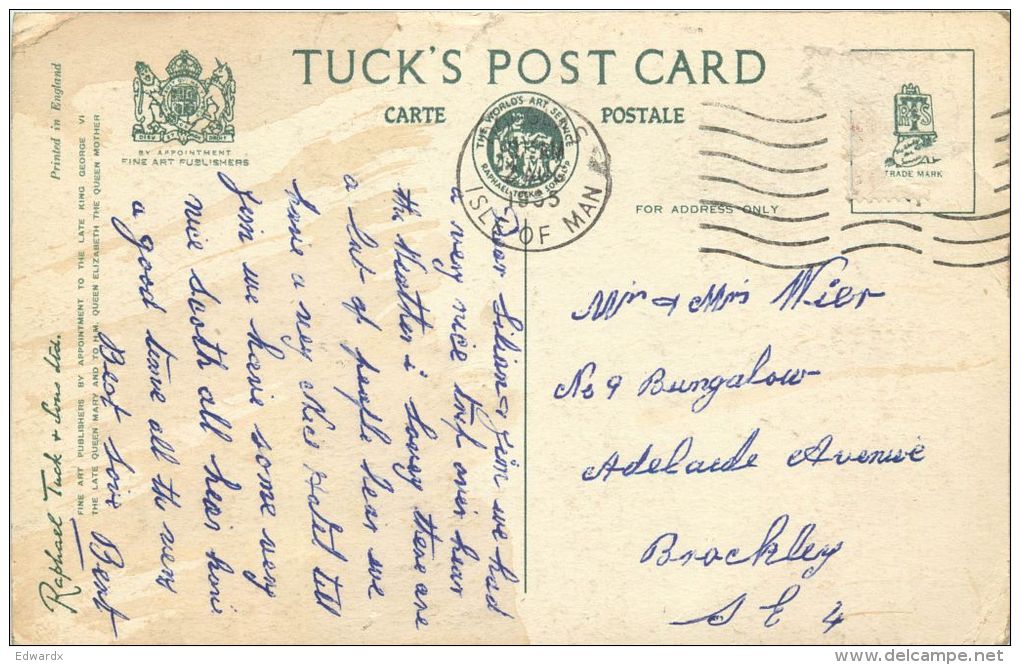 TUCK'S POST CARD
CARTE POSTALE
BY APPOINTMENT
FINE ART PUBLISHERS
THE WORLD'S ART SERVICE
RAPHAEL TUCK & SONS LTD
ISLE OF MAN
1955
TRADE MARK
FOR ADDRESS ONLY
Printed in England
Raphael Tuck & Sons Ltd.
FINE ART PUBLISHERS BY APPOINTMENT TO THE LATE KING GEORGE VI
THE LATE QUEEN MARY AND TO H.M. QUEEN ELIZABETH THE QUEEN MOTHER
Dear Lilian & Jim we had
a very nice trip over hear
the Weather is lovey there are
a lot of people hear we
have a very nice Hotel till
Jim we have some very
nice all hear have
a good time all the very
Best love Bert
Mr & Mrs Wier
No 9 Bungalow
Adelaide Avenue
Brockley
S E 4
Edwardx
delcampe.net